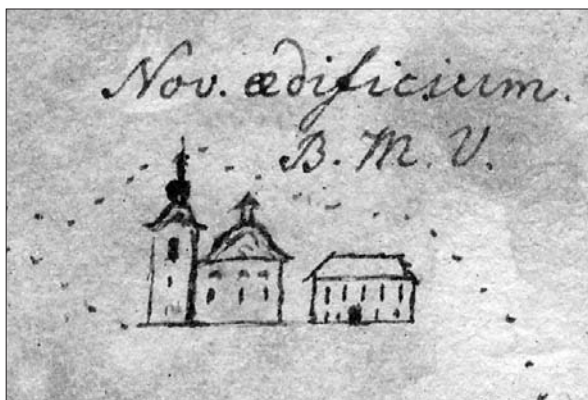 Nov. ædificium.
B. M. V.